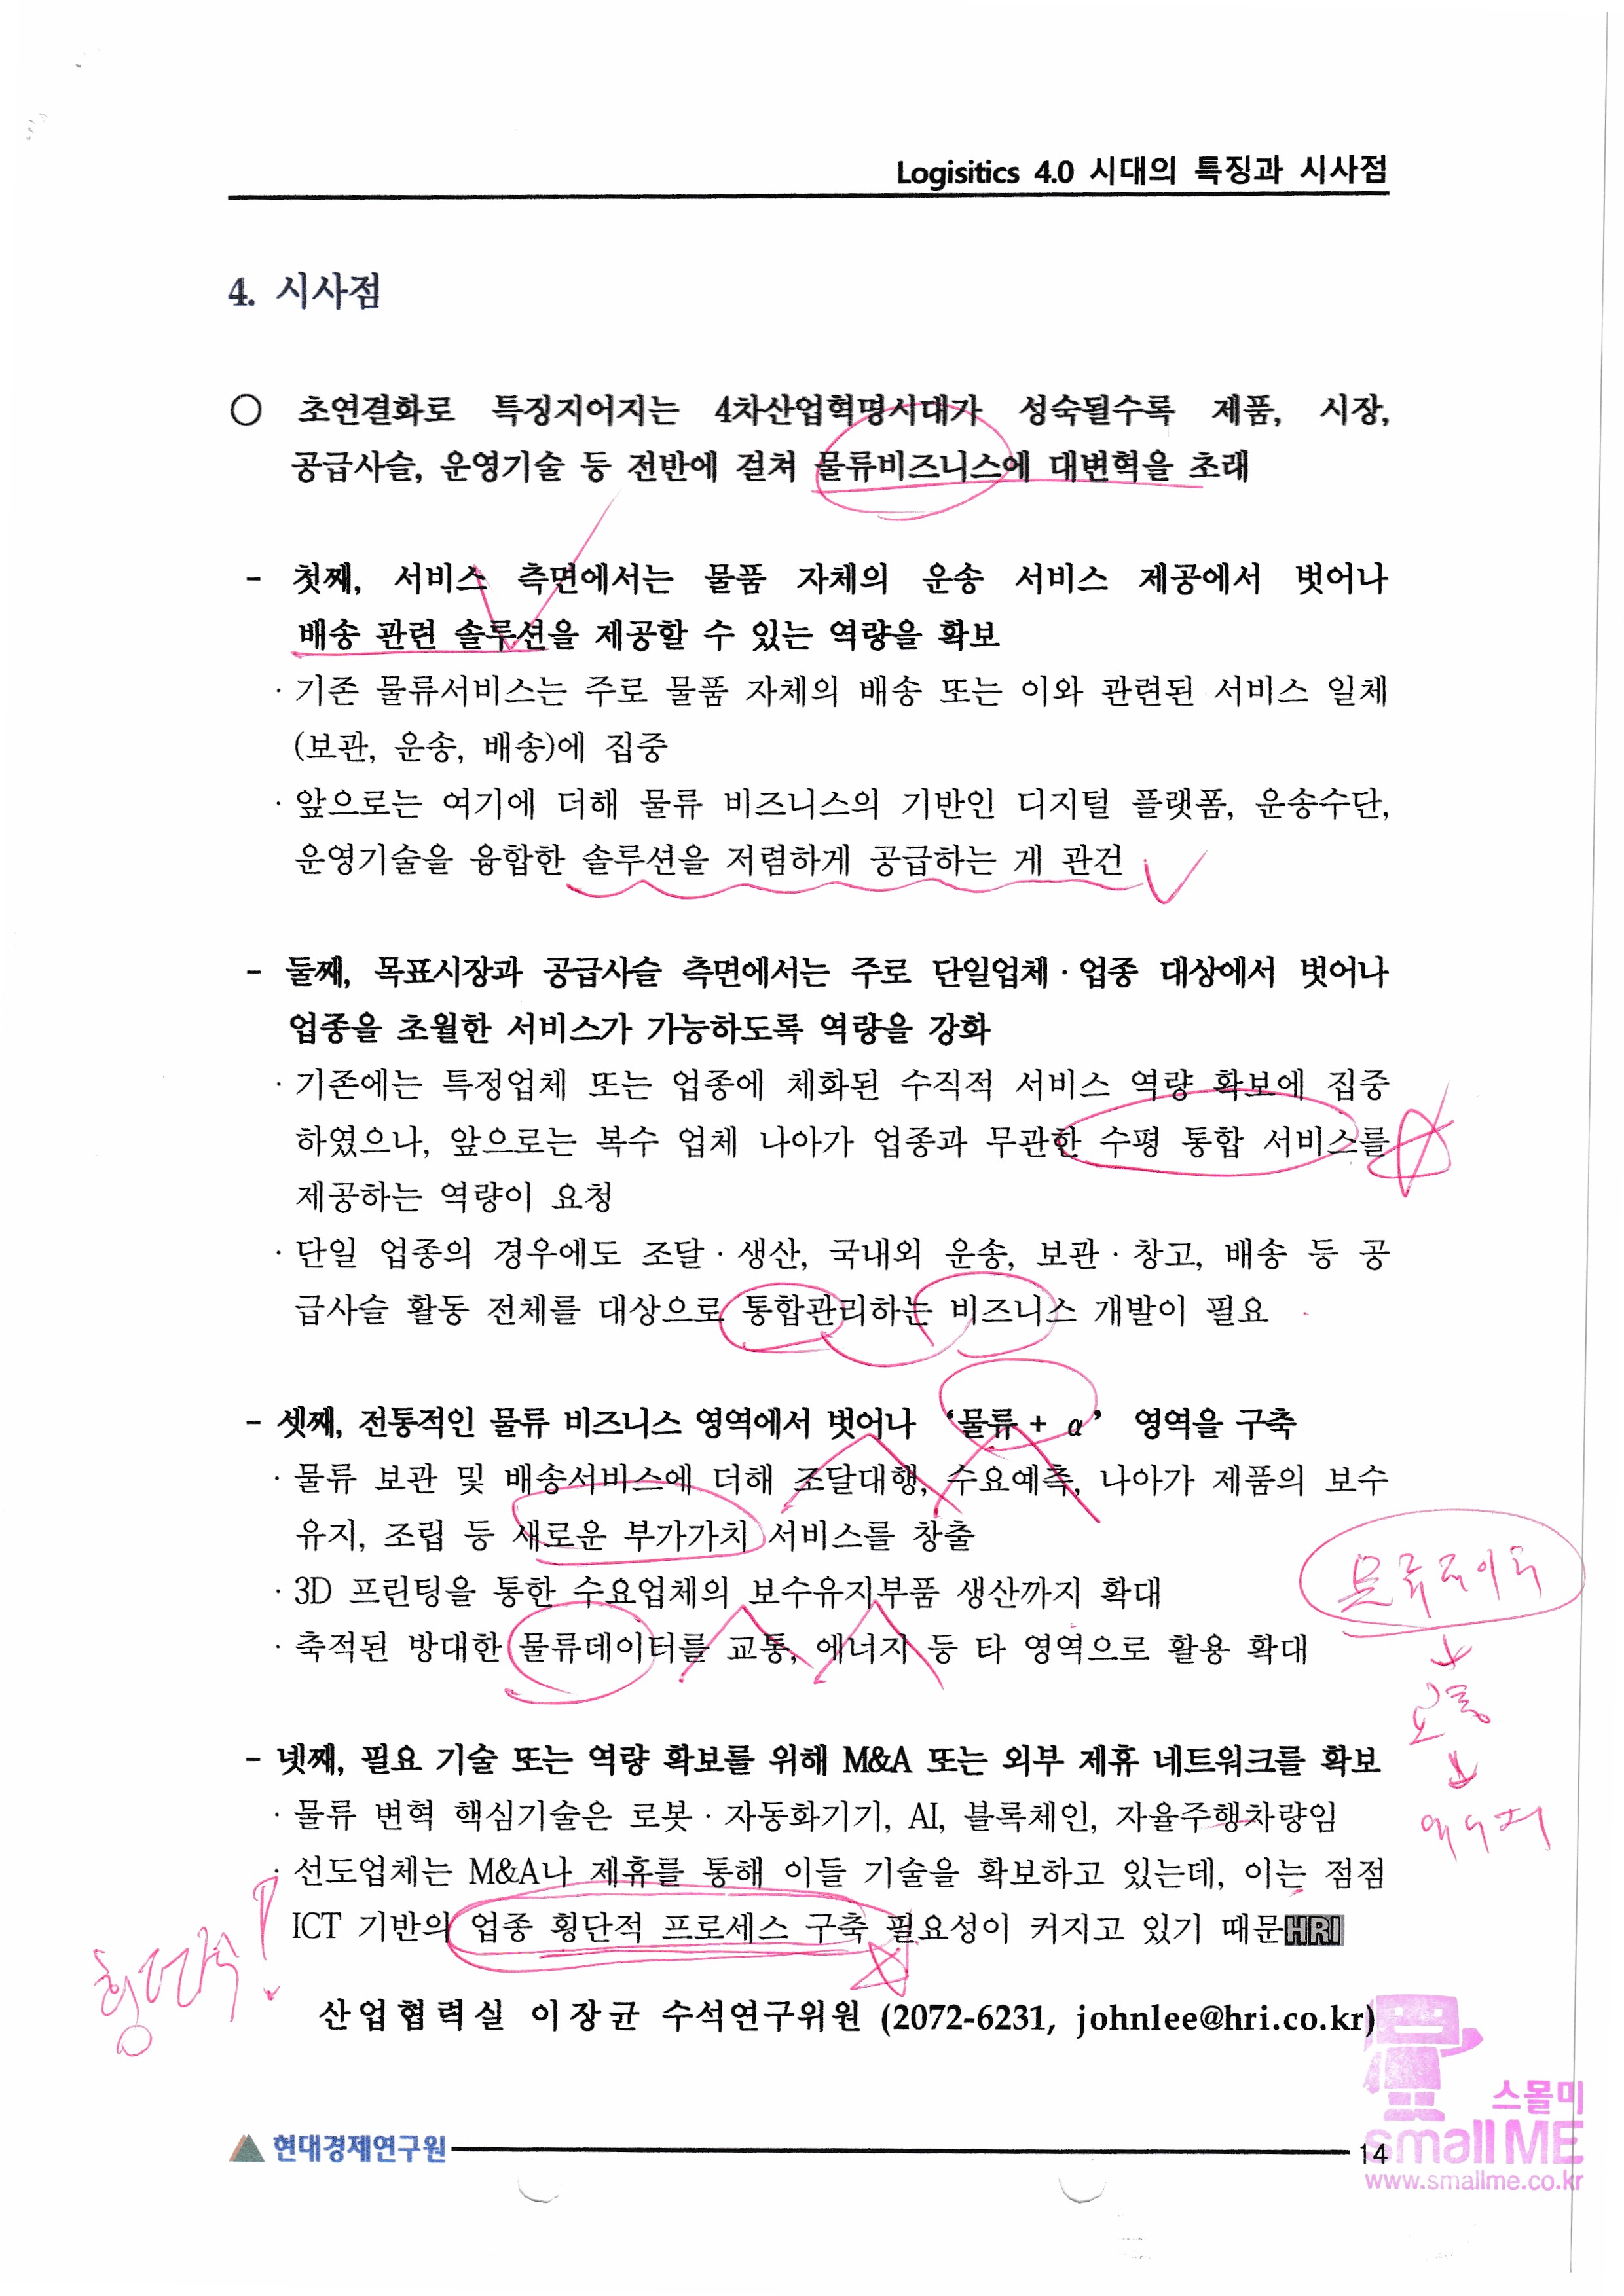 Logisitics 4.0 시대의 특징과 시사점
4. 시사점
○ 초연결화로 특징지어지는 4차산업혁명시대가 성숙될수록 제품, 시장,
공급사슬, 운영기술 등 전반에 걸쳐 물류비즈니스에 대변혁을 초래
- 첫째, 서비스 측면에서는 물품 자체의 운송 서비스 제공에서 벗어나
배송 관련 솔루션을 제공할 수 있는 역량을 확보
· 기존 물류서비스는 주로 물품 자체의 배송 또는 이와 관련된 서비스 일체
(보관, 운송, 배송)에 집중
· 앞으로는 여기에 더해 물류 비즈니스의 기반인 디지털 플랫폼, 운송수단,
운영기술을 융합한 솔루션을 저렴하게 공급하는 게 관건
- 둘째, 목표시장과 공급사슬 측면에서는 주로 단일업체 · 업종 대상에서 벗어나
업종을 초월한 서비스가 가능하도록 역량을 강화
· 기존에는 특정업체 또는 업종에 체화된 수직적 서비스 역량 확보에 집중
하였으나, 앞으로는 복수 업체 나아가 업종과 무관한 수평 통합 서비스를
제공하는 역량이 요청
· 단일 업종의 경우에도 조달 · 생산, 국내외 운송, 보관 · 창고, 배송 등 공
급사슬 활동 전체를 대상으로 통합관리하는 비즈니스 개발이 필요
- 셋째, 전통적인 물류 비즈니스 영역에서 벗어나 ‘물류 + α’ 영역을 구축
· 물류 보관 및 배송서비스에 더해 조달대행, 수요예측, 나아가 제품의 보수
유지, 조립 등 새로운 부가가치 서비스를 창출
· 3D 프린팅을 통한 수요업체의 보수유지부품 생산까지 확대
· 축적된 방대한 물류데이터를 교통, 에너지 등 타 영역으로 활용 확대
교통
에너지
- 넷째, 필요 기술 또는 역량 확보를 위해 M&A 또는 외부 제휴 네트워크를 확보
· 물류 변혁 핵심기술은 로봇 · 자동화기기, AI, 블록체인, 자율주행차량임
· 선도업체는 M&A나 제휴를 통해 이들 기술을 확보하고 있는데, 이는 점점
ICT 기반의 업종 횡단적 프로세스 구축 필요성이 커지고 있기 때문HRI
산업협력실 이장균 수석연구위원 (2072-6231, johnlee@hri.co.kr)
현대경제연구원
14
스몰미
smallME
www.smallme.co.kr